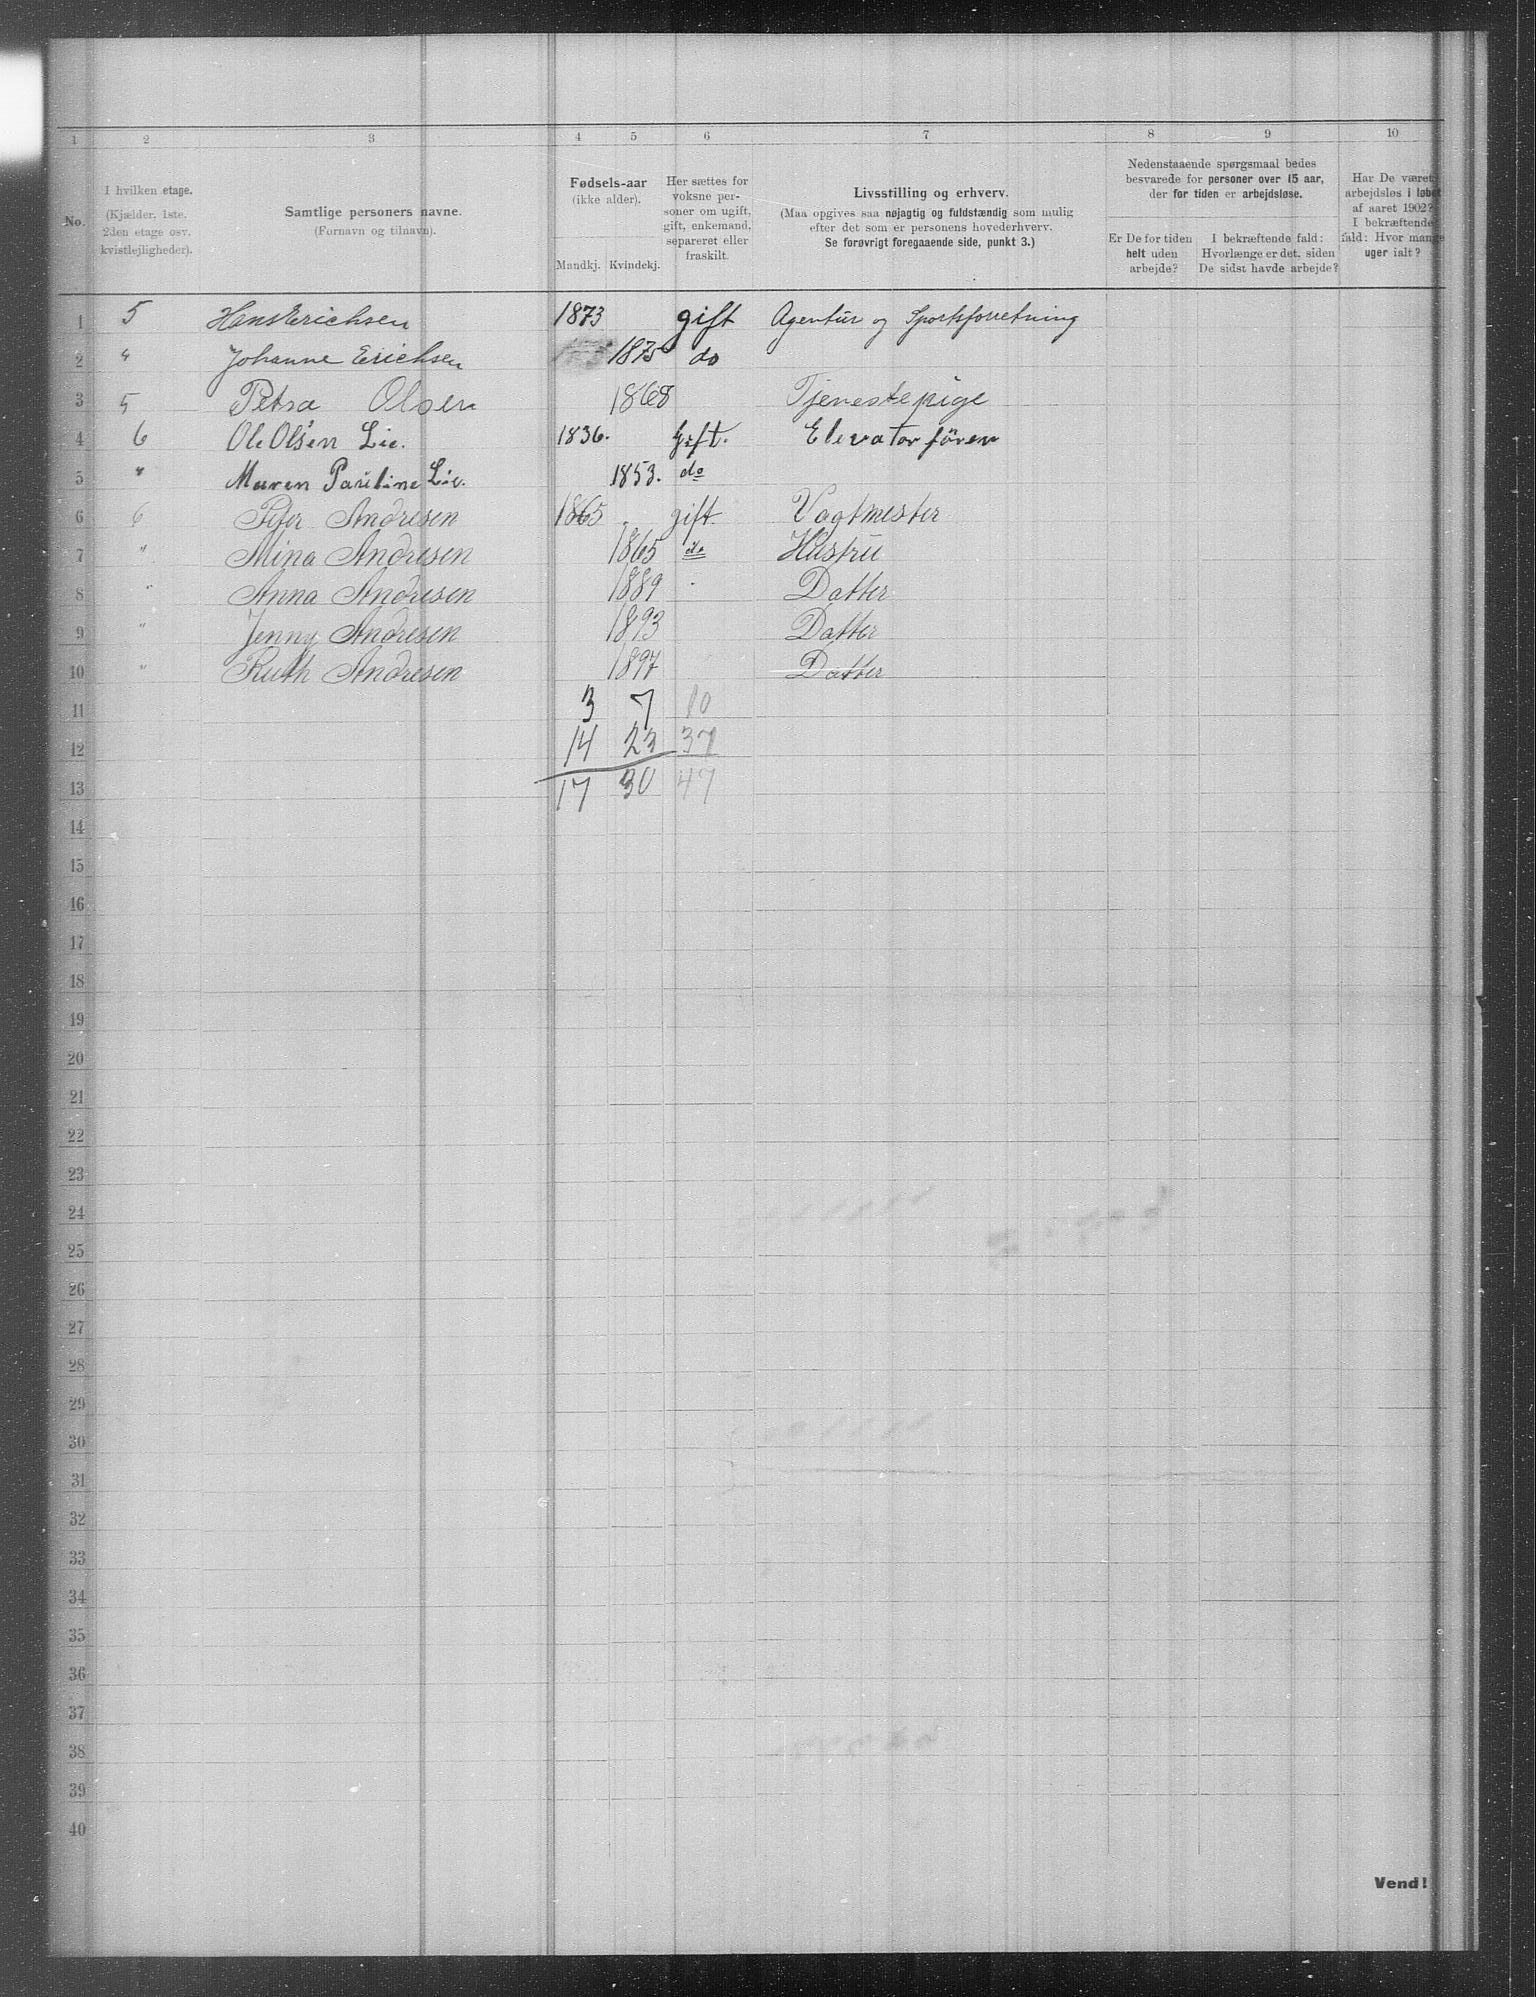 1 2 3 4 5 6 7 8 9 10
No.
I hvilken etage.
(Kjælder, 1ste.
2den etage osv.
kvistlejligheder).
Samtlige personers navne.
(Fornavn og tilnavn).
Fødsels-aar
(ikke alder).
Mandkj. Kvindekj.
Her sættes for
voksne per-
soner om ugift,
gift, enkemand,
separeret eller
fraskilt.
Livsstilling og erhverv.
(Maa opgives saa nøjagtig og fuldstændig som mulig
efter det som er personens hovederhverv.
Se forøvrigt foregaaende side, punkt 3.)
Nedenstaaende spørgsmaal bedes
besvarede for personer over 15 aar,
der for tiden er arbejdsløse.
Er De for tiden
helt uden
arbejde?
I bekræftende fald:
Hvorlænge er det, siden
De sidst havde arbejde?
Har De været
arbejdsløs i løbet
af aaret 1902?
I bekræftende
fald: Hvor mange
uger ialt?
1 5 Hans Erichsen 1873 gift Agentur og Sportsforretning
2 " Johanne Erichsen 1875 do
3 5 Petra Olsen 1868 Tjenestepige
4 6 Ole Olsen Lie. 1836. Gift. Elevator fören
5 " Maren Pauline Lie. 1853. do
6 6 Peter Andresen 1865 gift Vagtmester
7 " Mina Andresen 1865 do Hustru
8 " Anna Andresen 1889 Datter
9 " Jenny Andresen 1893 Datter
10 " Ruth Andresen 1897 Datter
11 3 7 10
12 14 23 37
13 17 30 47
14
15
16
17
18
19
20
21
22
23
24
25
26
27
28
29
30
31
32
33
34
35
36
37
38
39
40
Vend!